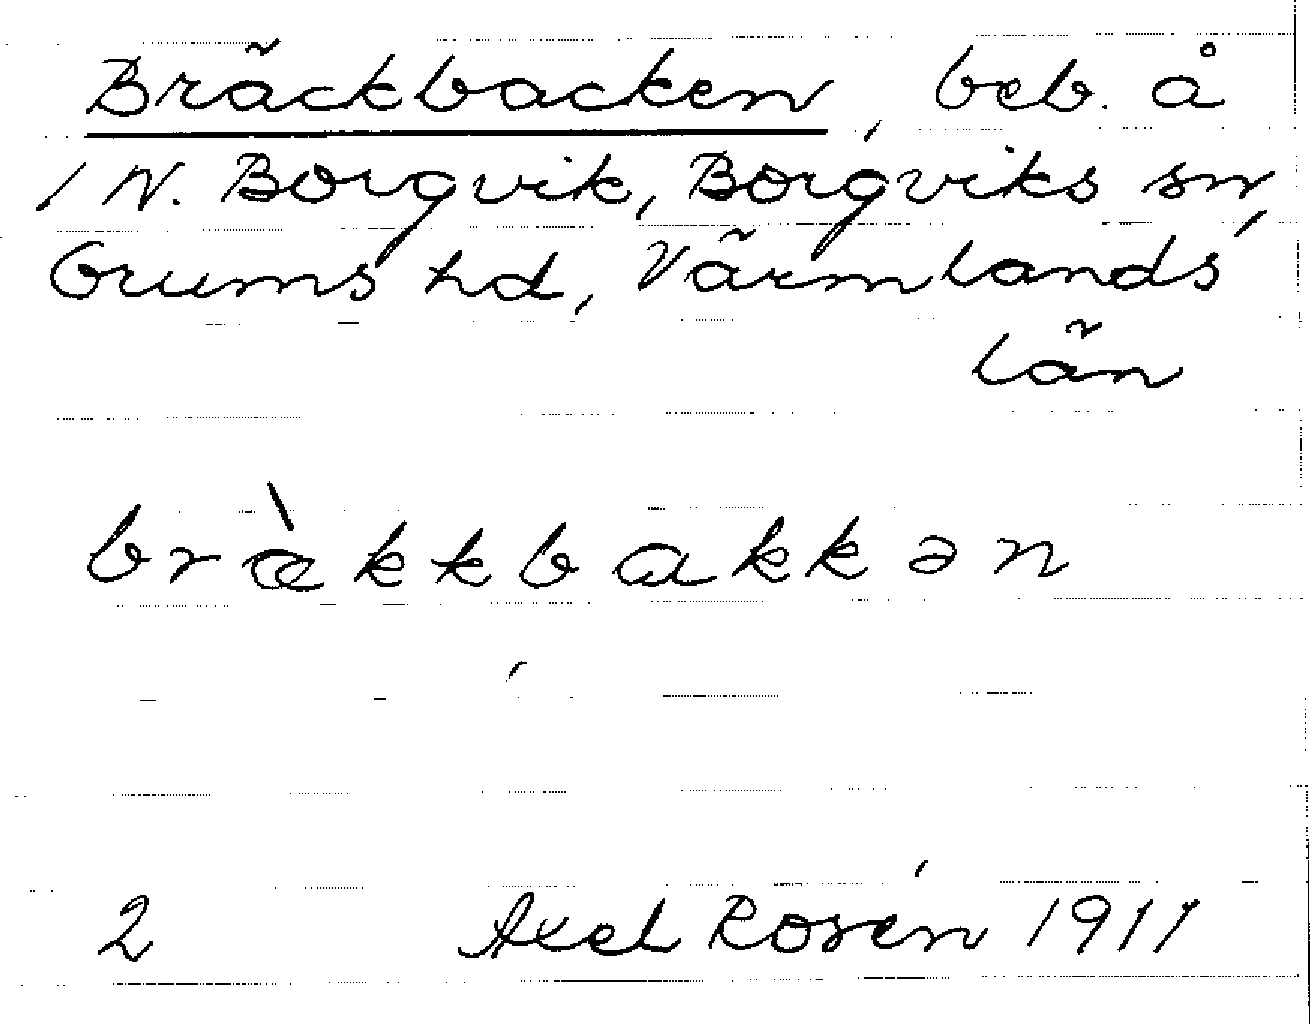 Bräckbacken, beb. å
1 N. Borgvik, Borgviks sn,
Grums hd, Värmlands
län
bræ̀kkbakkən
2 Axel Rosén 1911